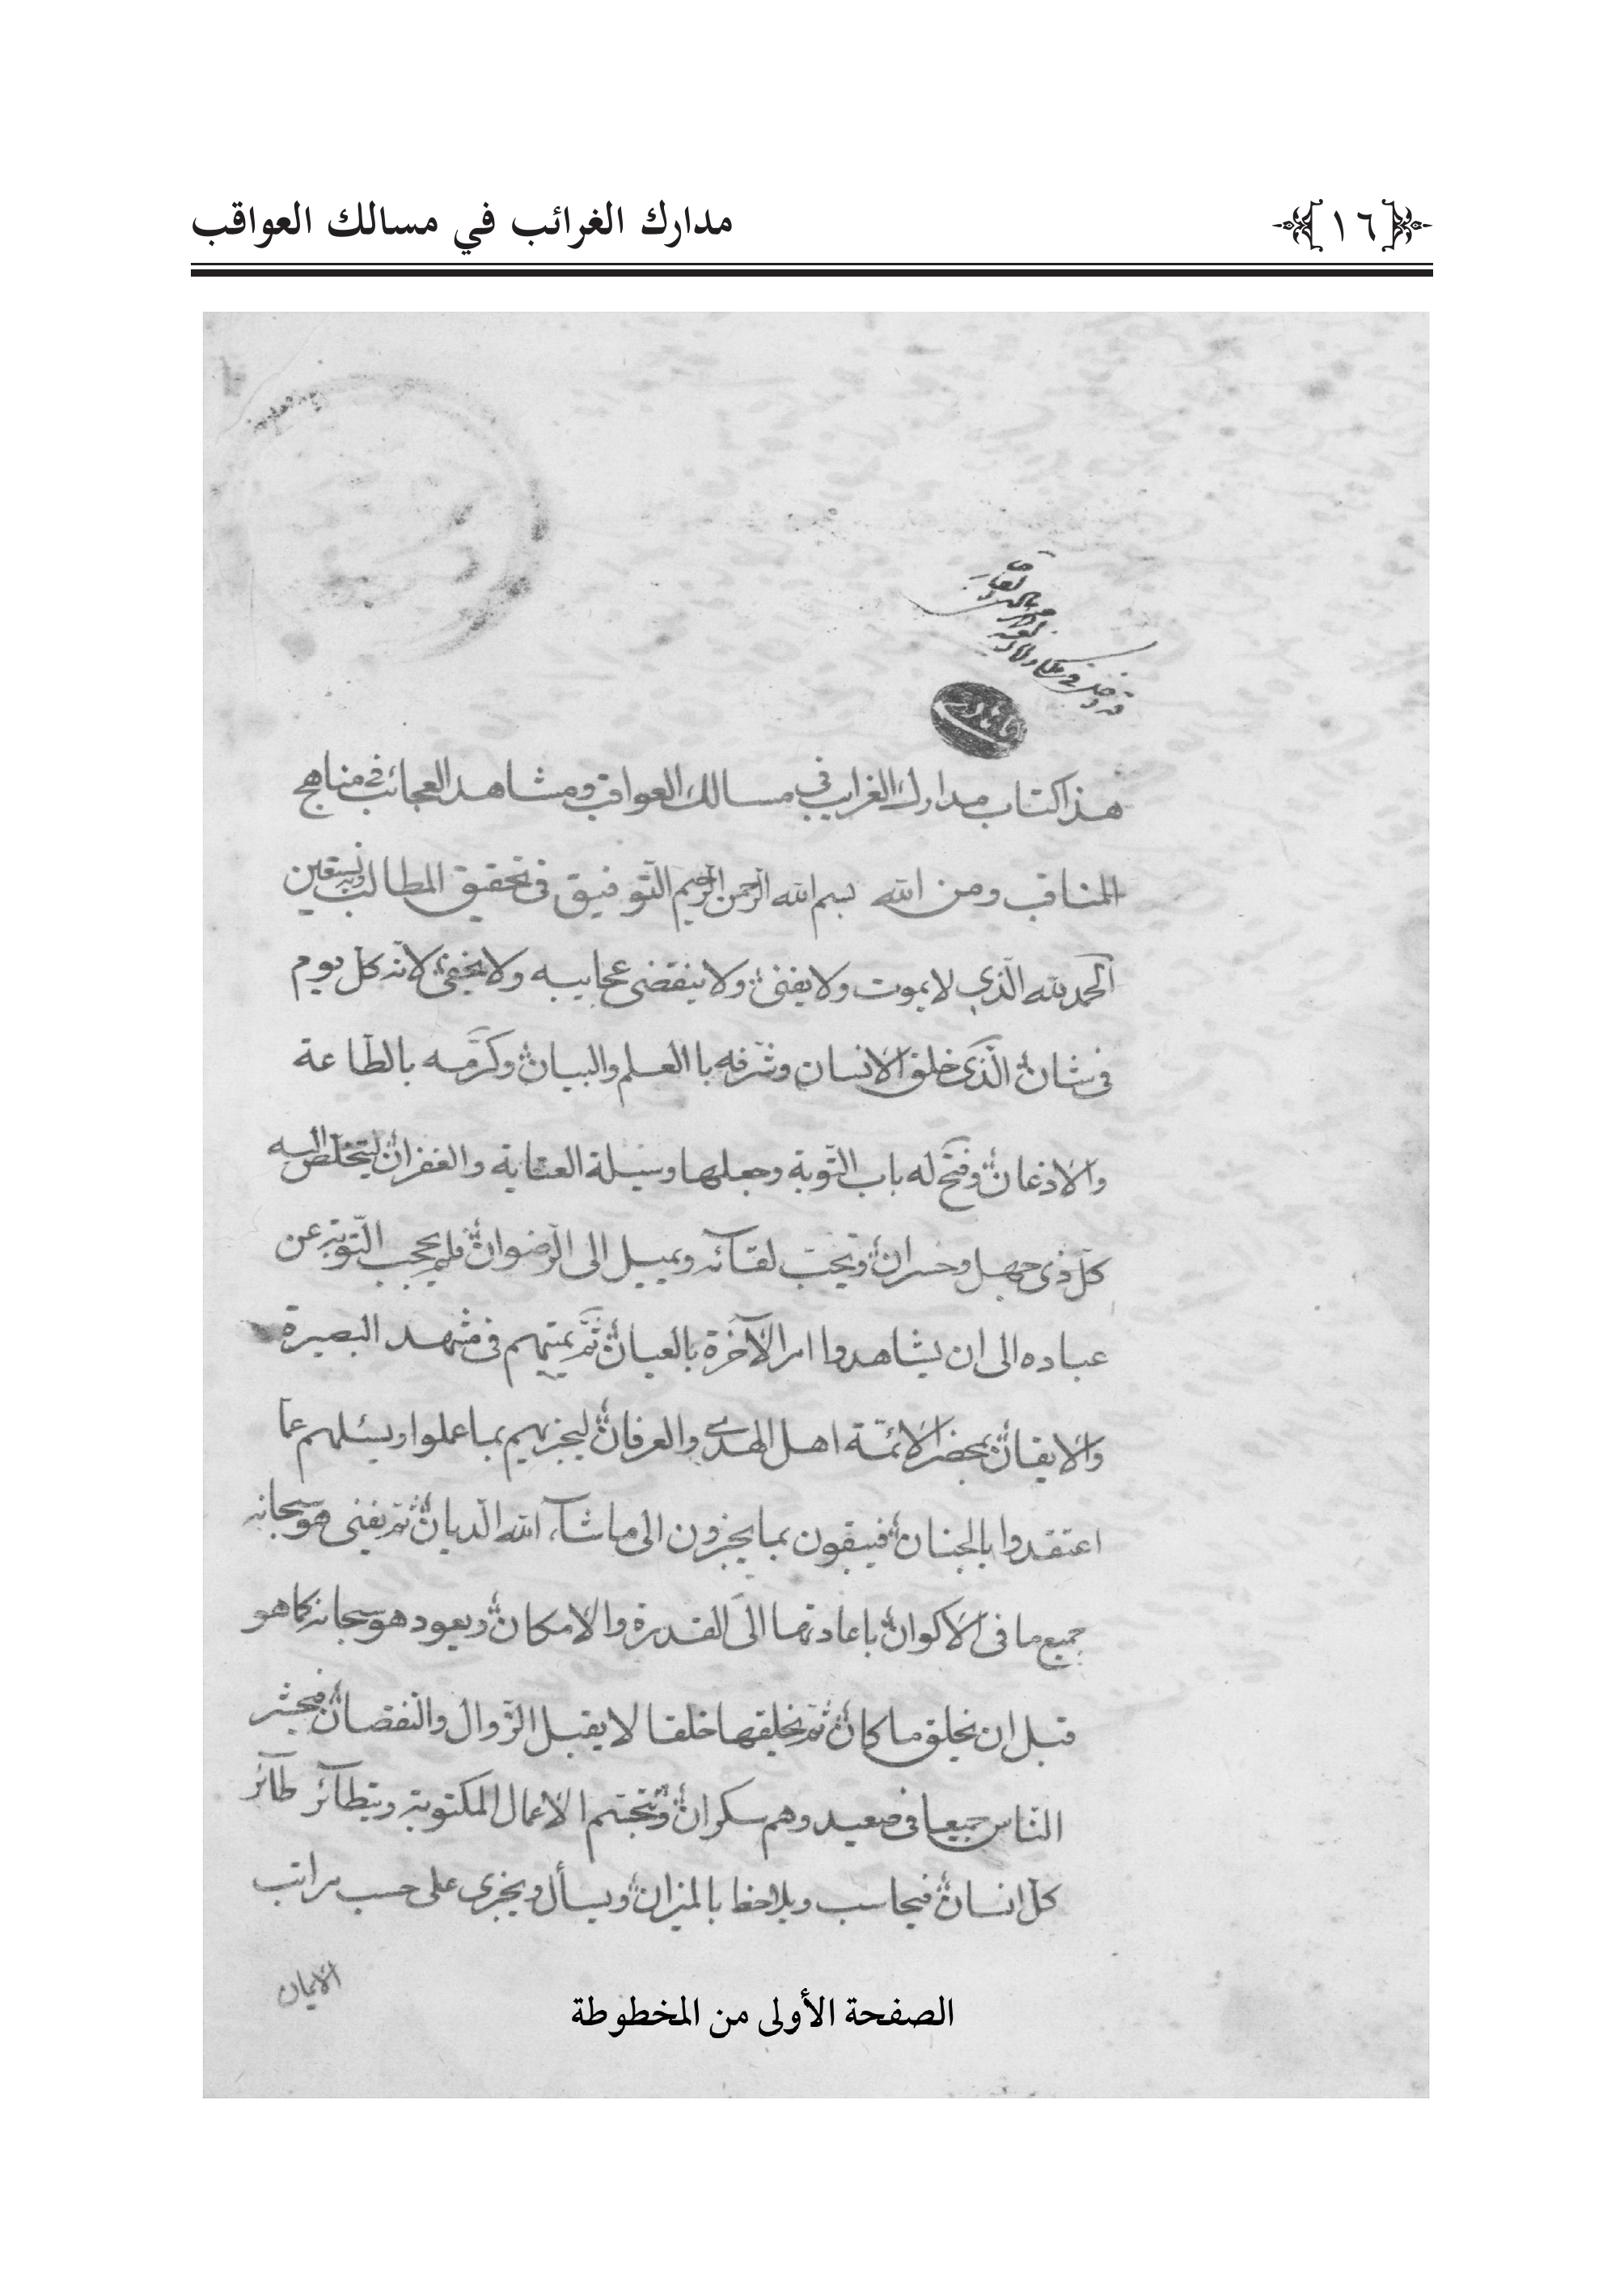 مدارك الغرائب في مسالك العواقب
١٦
هذا كتاب مدارك الغرايب في مسالك العواقب ومشاهد العجائب في مناهج
المناقب ومن الله بسم الله الرحمن الرحيم التوفيق في تحقيق المطالب وبه نستعين
الحمد لله الّذي لا يموت ولا يفنى ولا ينقضي عجايبه ولا يخفى لانّه كل يوم
في شان الّذي خلق الانسان وشرّفه باالعلم والبيان وكرّمه بالطّاعة
والاذعان وفتح له باب التّوبة وجعلها وسيلة العناية والغفران ليتخلّص اليه
كلّ ذي جهل وخسران ويحبّ لقآئه ويميل الى الرّضوان فلم يحجب التّوبة عن
عباده الى ان يشاهدوا امر الآخرة بالعيان ثمّ يميتهم في مشهد البصيرة
والايقان بمحضر الائمّة اهل الهدى والعرفان ليجزيهم بما عملوا ويسئلهم عما
اعتقدوا بالجنان فيبقون بما يجزون الى ماشآء الله الّديان ثم يفنى هو سبحانه
جميع ما في الاكوان باعادتها الى القدرة والامكان ويعود هو سبحانه كما هو
قبل ان يخلق ما كان ثم يخلقها خلقا لا يقبل الزّوال والنّقصان فيحشر
النّاس جميعا في صعيد وهم سكران وتختم الاعمال المكتوبة ويتطآئر طآئر
كلّ انسان فيحاسب ويلاحظ بالميزان ويسأل ويجزى على حسب مراتب
الايمان
الصفحة الأولى من المخطوطة